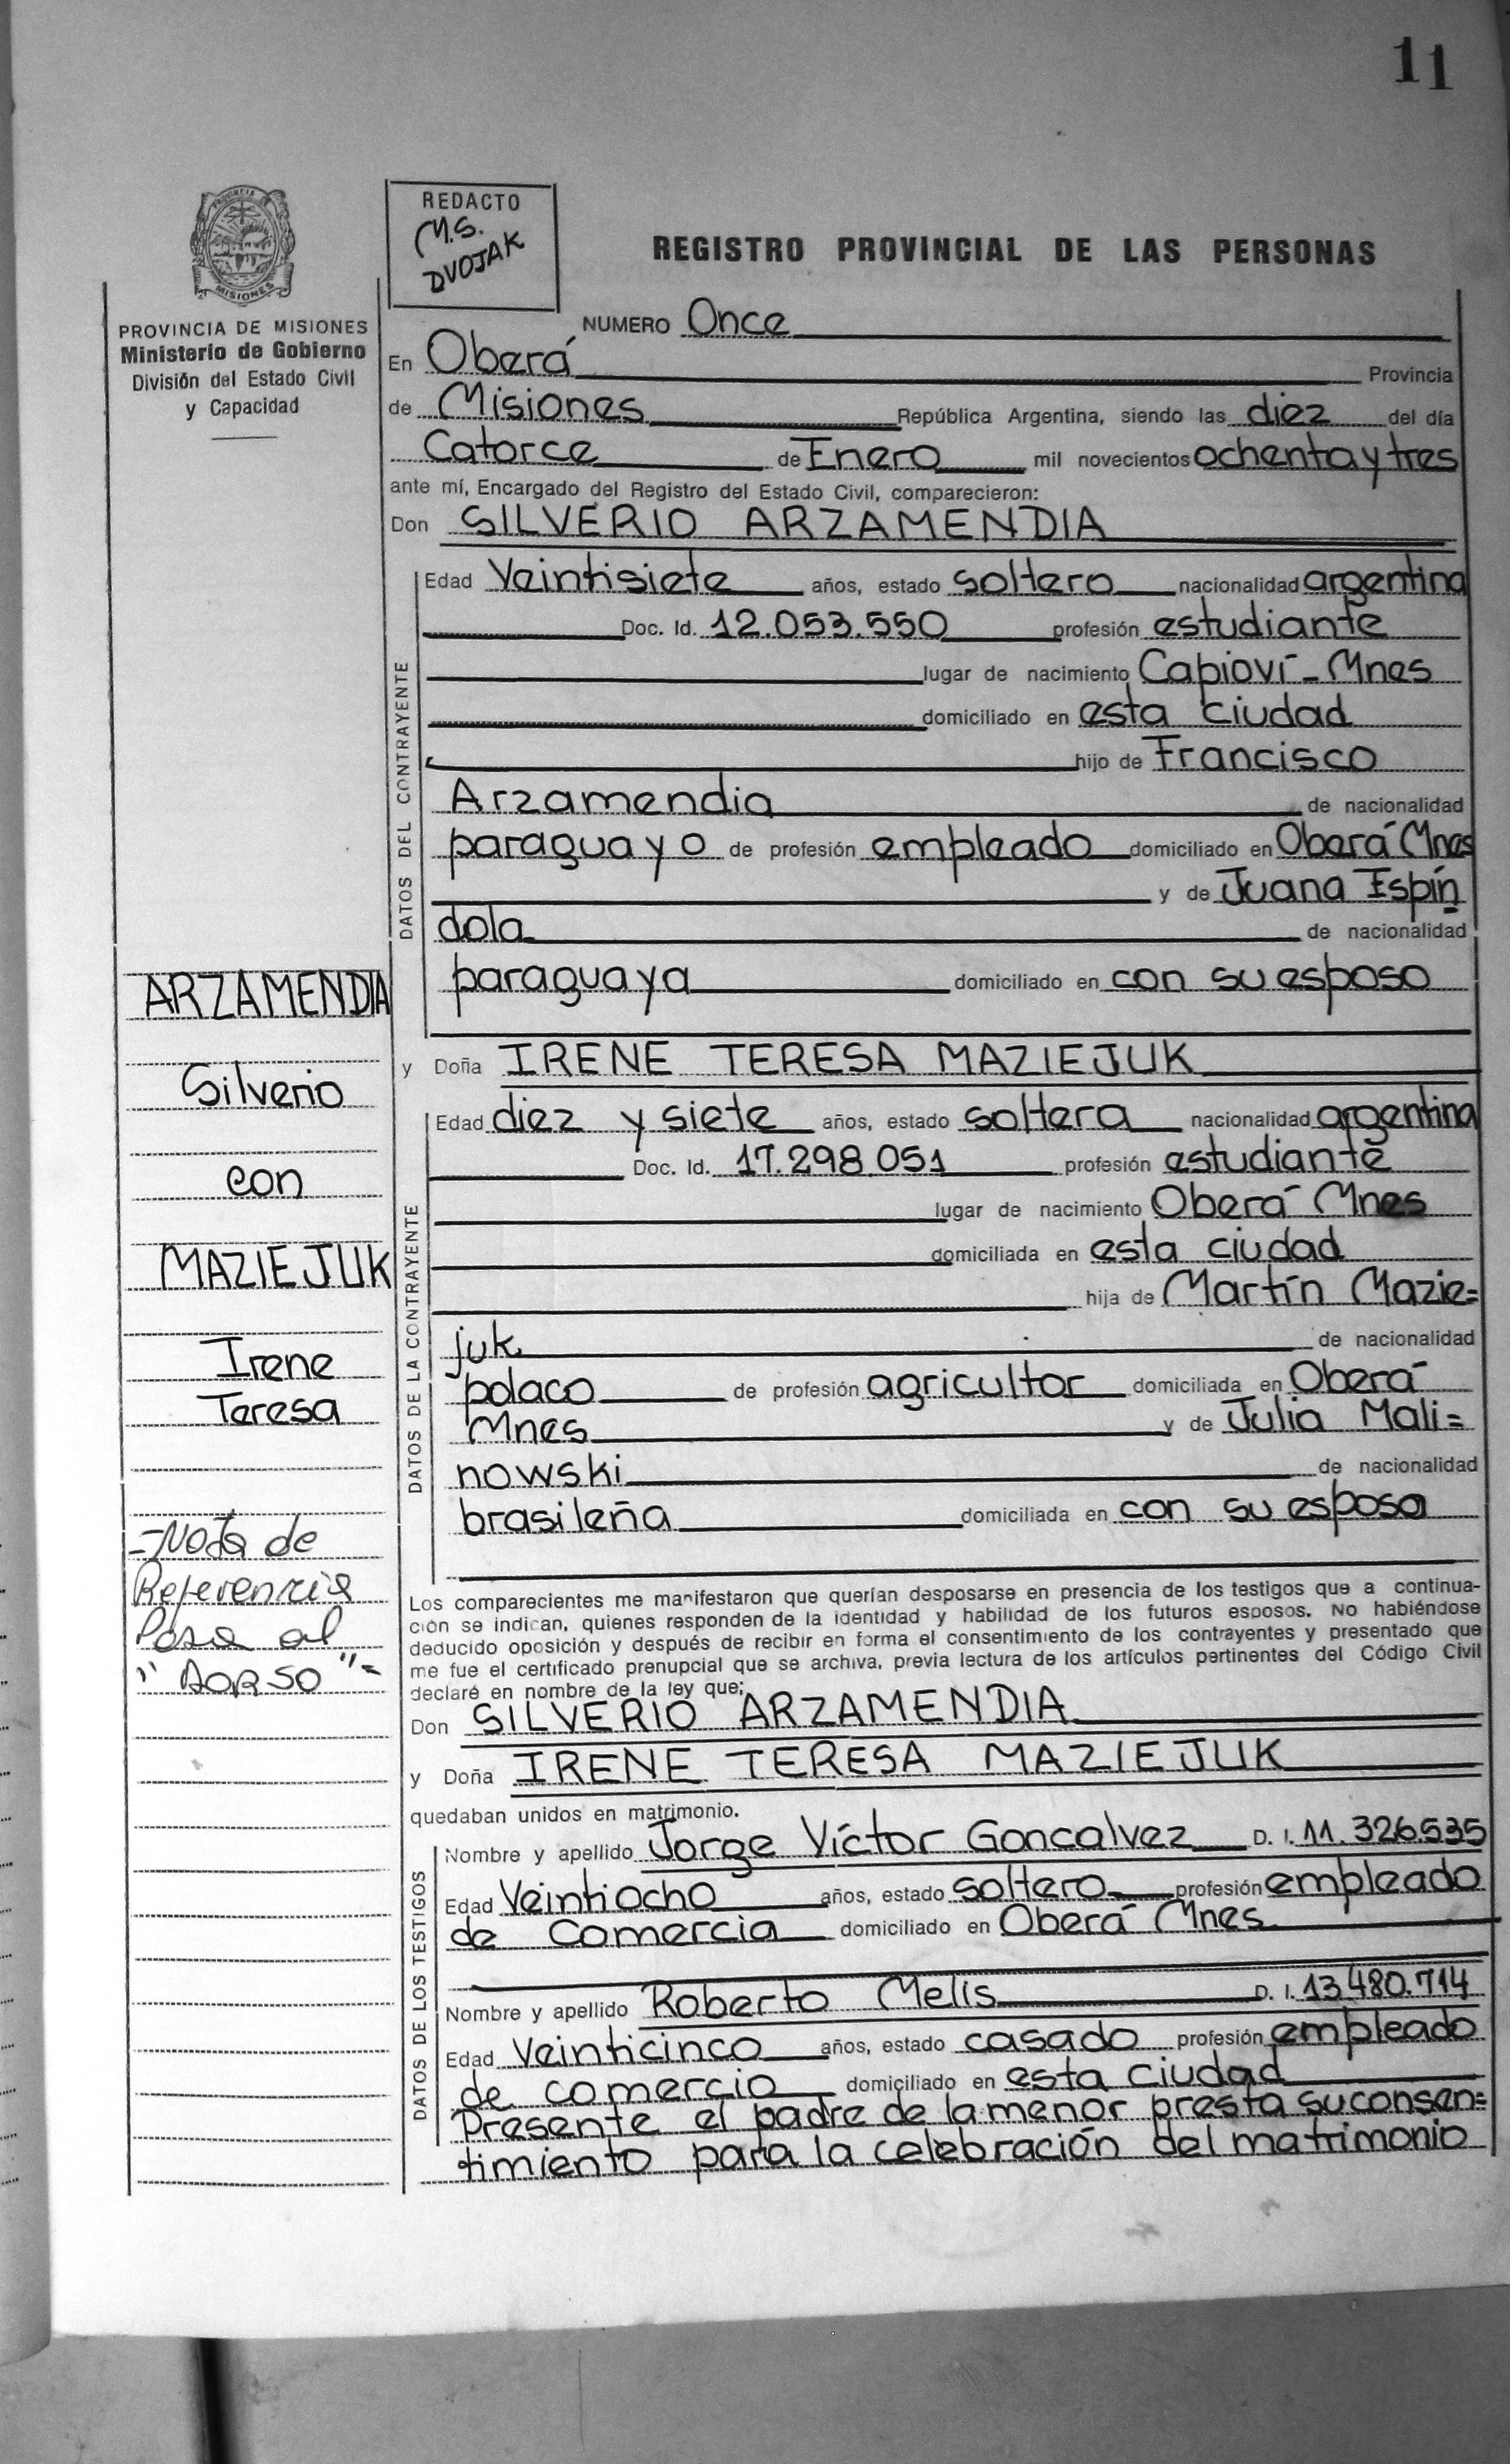 11
REDACTO
M.S.
DVOJAK
REGISTRO PROVINCIAL DE LAS PERSONAS
PROVINCIA DE MISIONES
Ministerio de Gobierno
División del Estado Civil
y Capacidad
NUMERO Once
En Oberá Provincia
de Misiones República Argentina, siendo las diez del día
Catorce de Enero mil novecientos ochenta y tres
ante mí, Encargado del Registro del Estado Civil, comparecieron:
Don SILVERIO ARZAMENDIA
DATOS DEL CONTRAYENTE
Edad Veintisiete años, estado soltero nacionalidad argentina
Doc. Id. 12.053.550 profesión estudiante
lugar de nacimiento Capioví - Mnes
domiciliado en esta ciudad
hijo de Francisco
Arzamendia de nacionalidad
paraguayo de profesión empleado domiciliado en Oberá Mnes
y de Juana Espín
dola de nacionalidad
paraguaya domiciliado en con su esposo
y Doña IRENE TERESA MAZIEJUK
DATOS DE LA CONTRAYENTE
Edad diez y siete años, estado soltera nacionalidad argentina
Doc. Id. 17.298.051 profesión estudiante
lugar de nacimiento Oberá Mnes
domiciliada en esta ciudad
hija de Martín Mazie=
juk de nacionalidad
polaco de profesión agricultor domiciliada en Oberá
Mnes y de Julia Mali=
nowski de nacionalidad
brasileña domiciliada en con su esposo
ARZAMENDIA
Silverio
con
MAZIEJUK
Irene
Teresa
=Nota de
Referencia
Pasa al
"DORSO"=
Los comparecientes me manifestaron que querían desposarse en presencia de los testigos que a continua-
ción se indican, quienes responden de la identidad y habilidad de los futuros esposos. No habiéndose
deducido oposición y después de recibir en forma el consentimiento de los contrayentes y presentado que
me fue el certificado prenupcial que se archiva, previa lectura de los artículos pertinentes del Código Civil
declaré en nombre de la ley que:
Don SILVERIO ARZAMENDIA
y Doña IRENE TERESA MAZIEJUK
quedaban unidos en matrimonio.
DATOS DE LOS TESTIGOS
Nombre y apellido Jorge Víctor Goncalvez D. I. 11.326.535
Edad Veintiocho años, estado soltero profesión empleado
de Comercia domiciliado en Oberá Mnes
Nombre y apellido Roberto Melis D. I. 13.480.714
Edad Veinticinco años, estado casado profesión empleado
de comercio domiciliado en esta ciudad
Presente el padre de la menor presta su consen=
timiento para la celebración del matrimonio